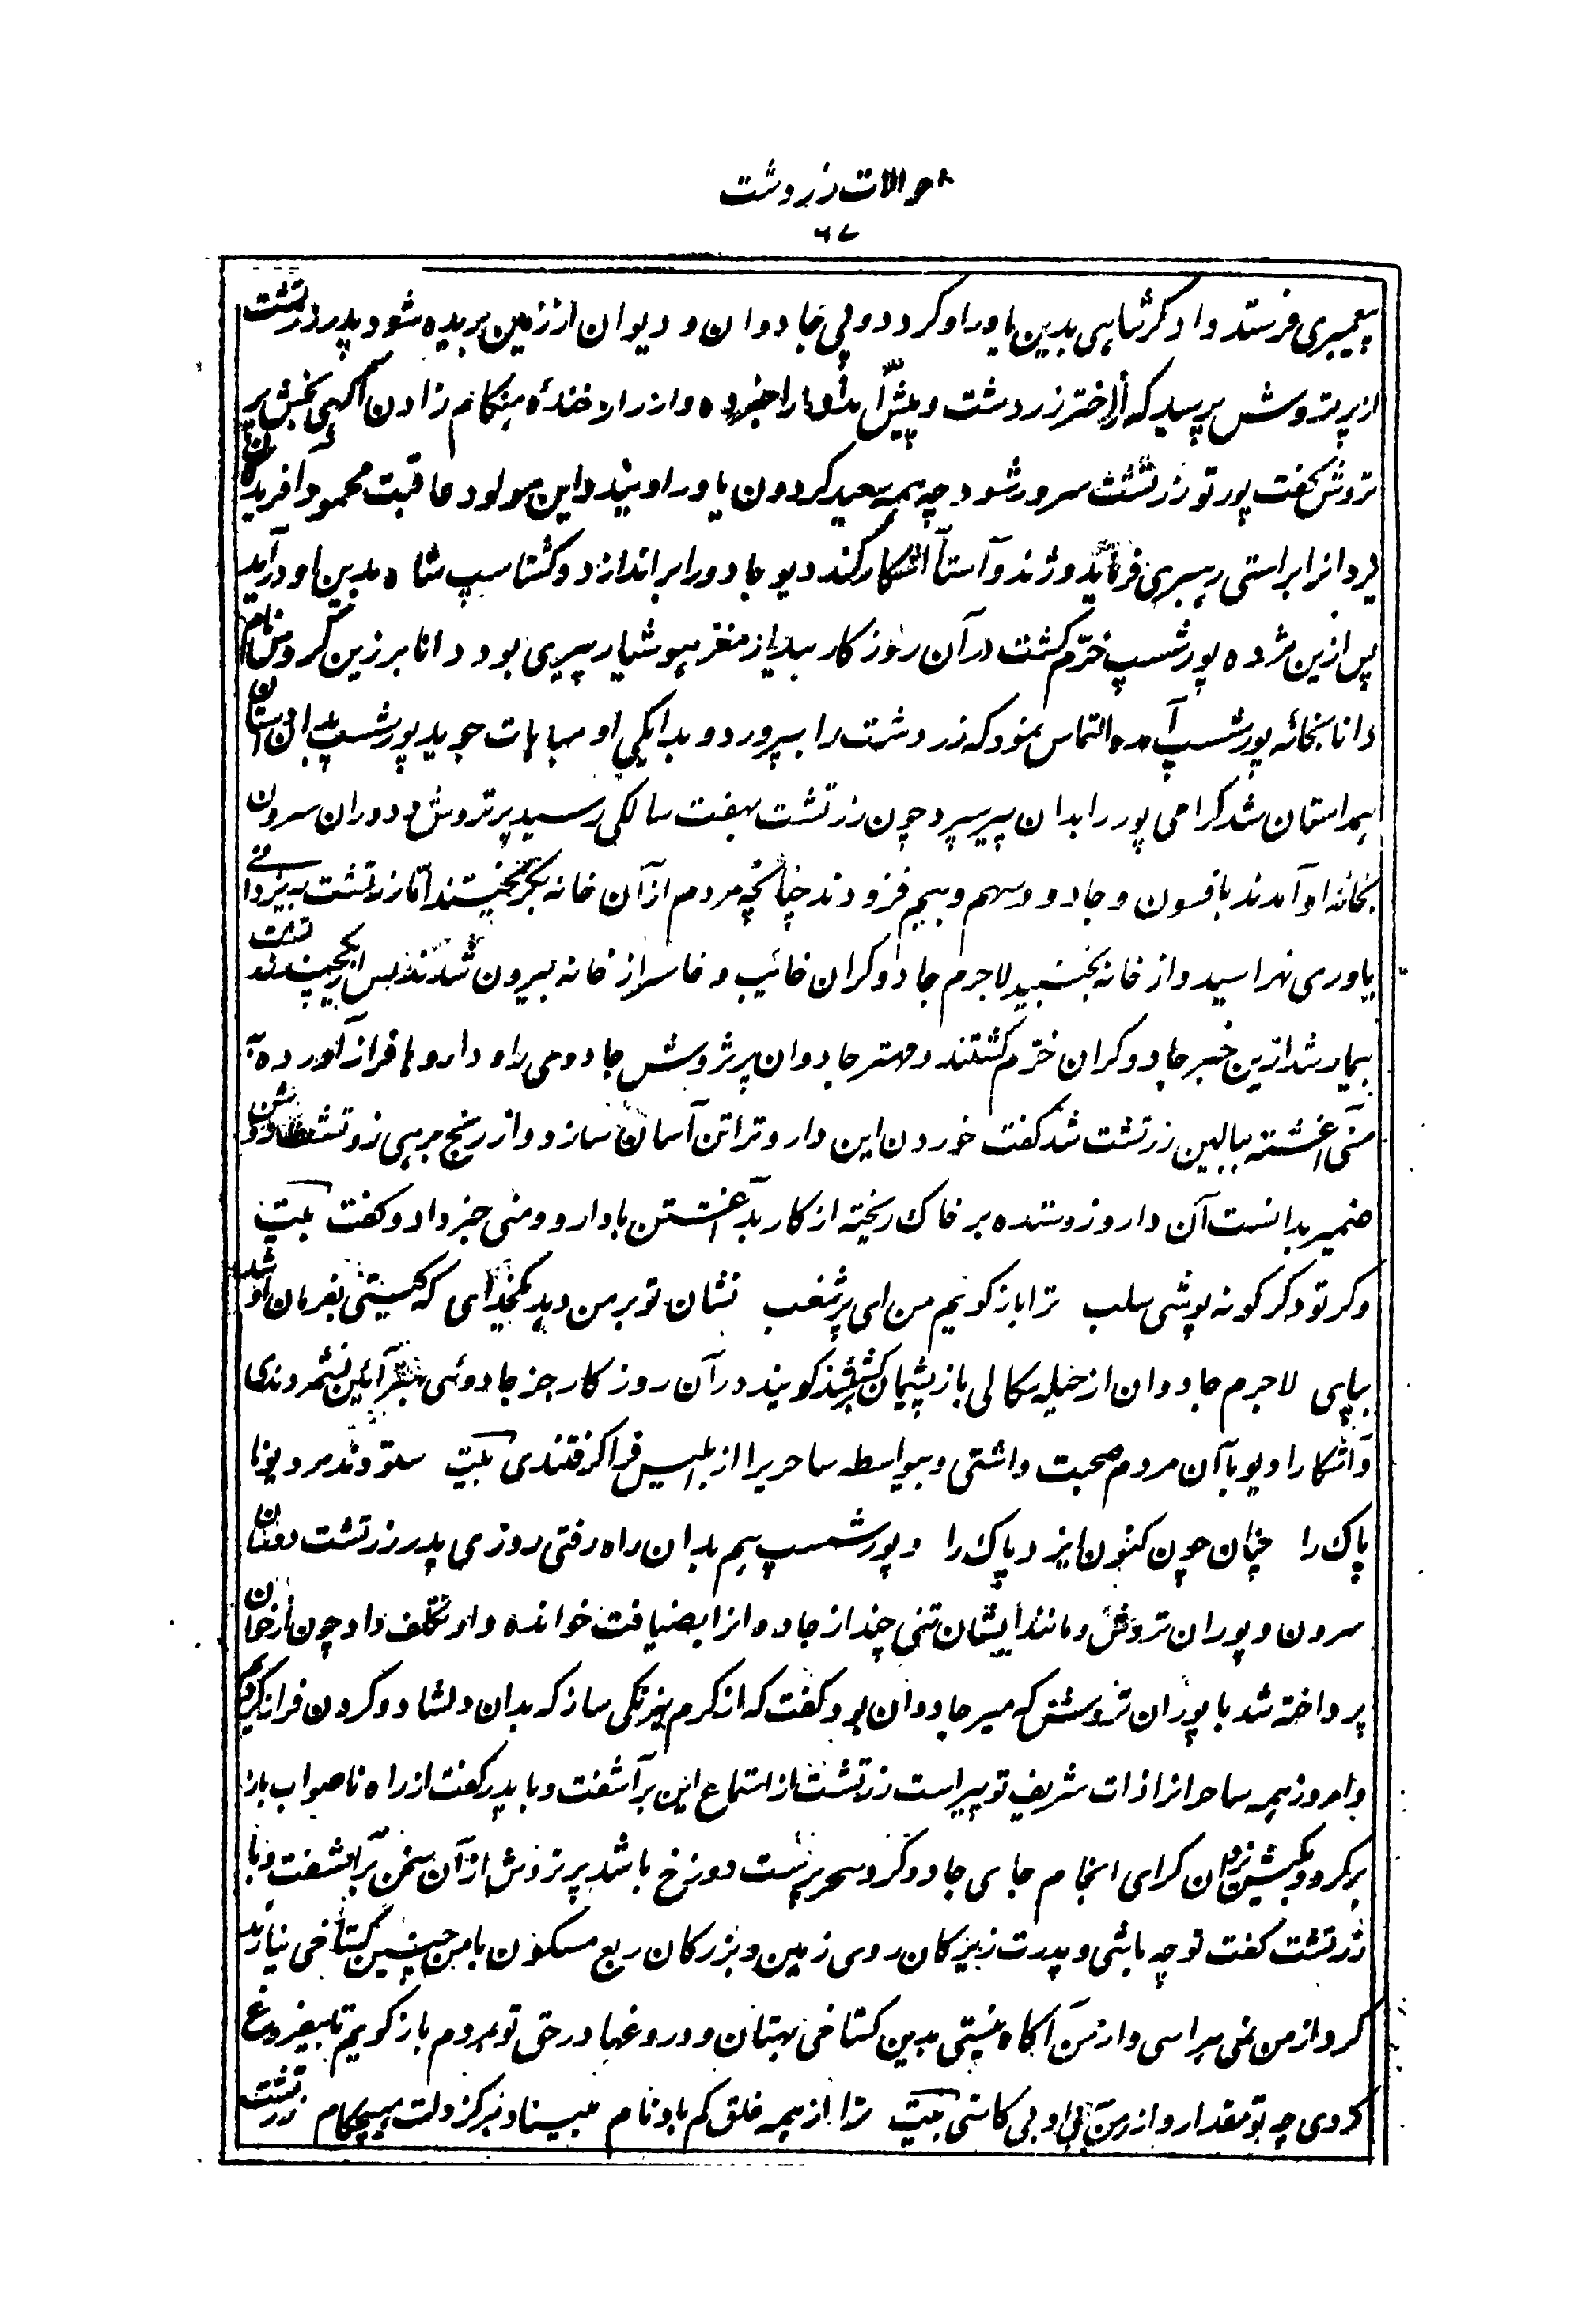 احوالات زردشت
۶۷
پیغمبری فرستد دادگر شاهی بدین یاور او کردد و پی جادوان و دیوان از زمین بریده شود پدر زرتشت
از پرتروش پرسید که از اختر زردشت و پیش آمدها را خبر ده و از راز خندهٔ هنکام زادن آکهی بخش پر
تروش کفت پور تو زرتشت سرور شود چه همه سعید کردون یاور اویند و این مولود عاقبت محمود آفریدکان
یزدانرا براستی رهبری فرماید و ژند و آستا آشکار کند دیو جادو را براندازد و کشتاسپ شاه بدین او درآید
پس ازین مژده پورشسپ خرّم کشت در آن روزکار بیدار مغز هوشیار پیری بود دانا برزین کروس نام
دانا بخانه پورشسپ آمده التماس نمود که زردشت را بپرورد و بدایکی او مباهات جوید پورشسپ بدان
همداستان شد کرامی پور را بدان پیر سپرد چون زرتشت بهفت سالکی رسید پرتروش و دوران سرون
بخانه او آمدند بافسون و جادو و سهم و بیم فزودند چنانچه مردم از آن خانه بکریختند امّا زرتشت به یزدانی
یاوری نهراسید و از خانه نجنبید لاجرم جادوکران خائب و خاسر از خانه بیرون شدند پس از چندی زرتشت
بیمار شد ازین خبر جادوکران خرّم کشتند و مهتر جادوان پرتروش جادوی را و داروها فراز آورده به
منی آغشته ببالین زرتشت شد کفت خوردن این دارو ترا تن آسان سازد و از رنج برهی زرتشت روشن
ضمیر بدانست آن دارو زو ستده بر خاک ریخته از کار بد آغشتن با دارو و منی خبر داد و کفت بیت
وکر تو دکر کونه پوشی سلب ترا بازکویم من ای پرشغب نشان تو بر من دهد کدخدای که کیتی بفرمان او شد
بپای لاجرم جادوان از حیله سکالی باز پشیمان کشتند کویند در آن روزکار جز جادوئی بهتر آئین نشمردندی
و آشکارا دیو با آن مردم صحبت داشتی و بیواسطه ساحریرا از ابلیس فراکرفتندی بیت ستودند مر دیو نا
پاک را چنان چون کنون ایزد پاک را و پورشسپ هم بدان راه رفتی روزی پدر زرتشت دوران
سرون و پوران تروش و مانند ایشان تنی چند از جادوانرا بضیافت خوانده داد تکلف داد چون از خوان
پرداخته شد با پوران تروش که میر جادوان بود کفت که از کرم نیرنکی ساز که بدان دلشاد و کردن فراز کردیم
و امروز همه ساحرانرا ذات شریف تو پیر است زرتشت از استماع این برآشفت و با پدر کفت از راه ناصواب باز
برکرد و بکیش یزدان کرای انجام جای جادوکر و سحرپرست دوزخ باشد پرتروش از آن سخن برآشفت و با
زرتشت کفت تو چه باشی و پدرت زیرکان روی زمین و بزرکان ربع مسکون با من چنین کستاخی نیارند
کرد از من نمی هراسی و از من آکاه نیستی بدین کستاخی بهتان و دروغها در حق تو بمردم بازکویم تا بیفروغ
کردی چه تو مقدار و از من بی کاستی بیت ترا از همه خلق کم باد نام مبینا دهرکز دلت هیچ کام زرتشت